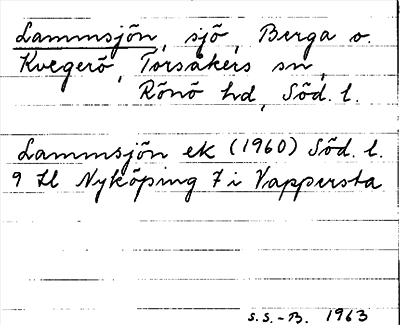 Lammsjön, sjö, Berga o.
Kvegerö, Torsåkers sn,
Rönö hd, Söd. l.
Lammsjön ek (1960) Söd. l.
9 Hl Nyköping 7 i Vappersta
S.S.-B. 1963